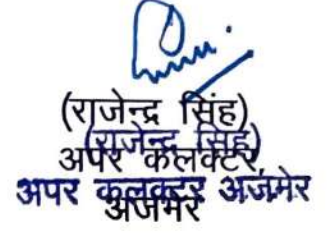 (राजेन्द्र सिंह)
(राजेन्द्र सिंह)
अपर कलक्टर,
अपर कलक्टर अजमेर
अजमेर